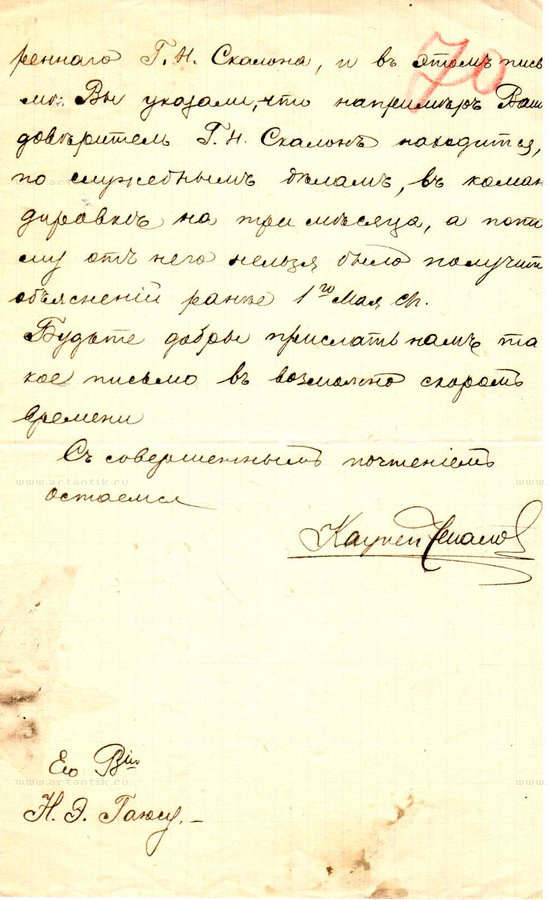 реннаго Г. Н. Скалона, и въ этомъ пись
мѣ Вы указали, что напримѣръ Ваш
довѣритель Г. Н. Скалонъ находится,
по служебнымъ дѣламъ, въ коман
дировкѣ на три мѣсяца, а пото
му отъ него нельзя было получить
объясненій ранѣе 1го Мая
Будьте добры прислать намъ та
кое письмо въ возможно скоромъ
времени
Съ совершеннымъ почтеніемъ
остаемся
Его
Н. Э. Гаюсу.
70
www.artantik.ru
www.artantik.ru